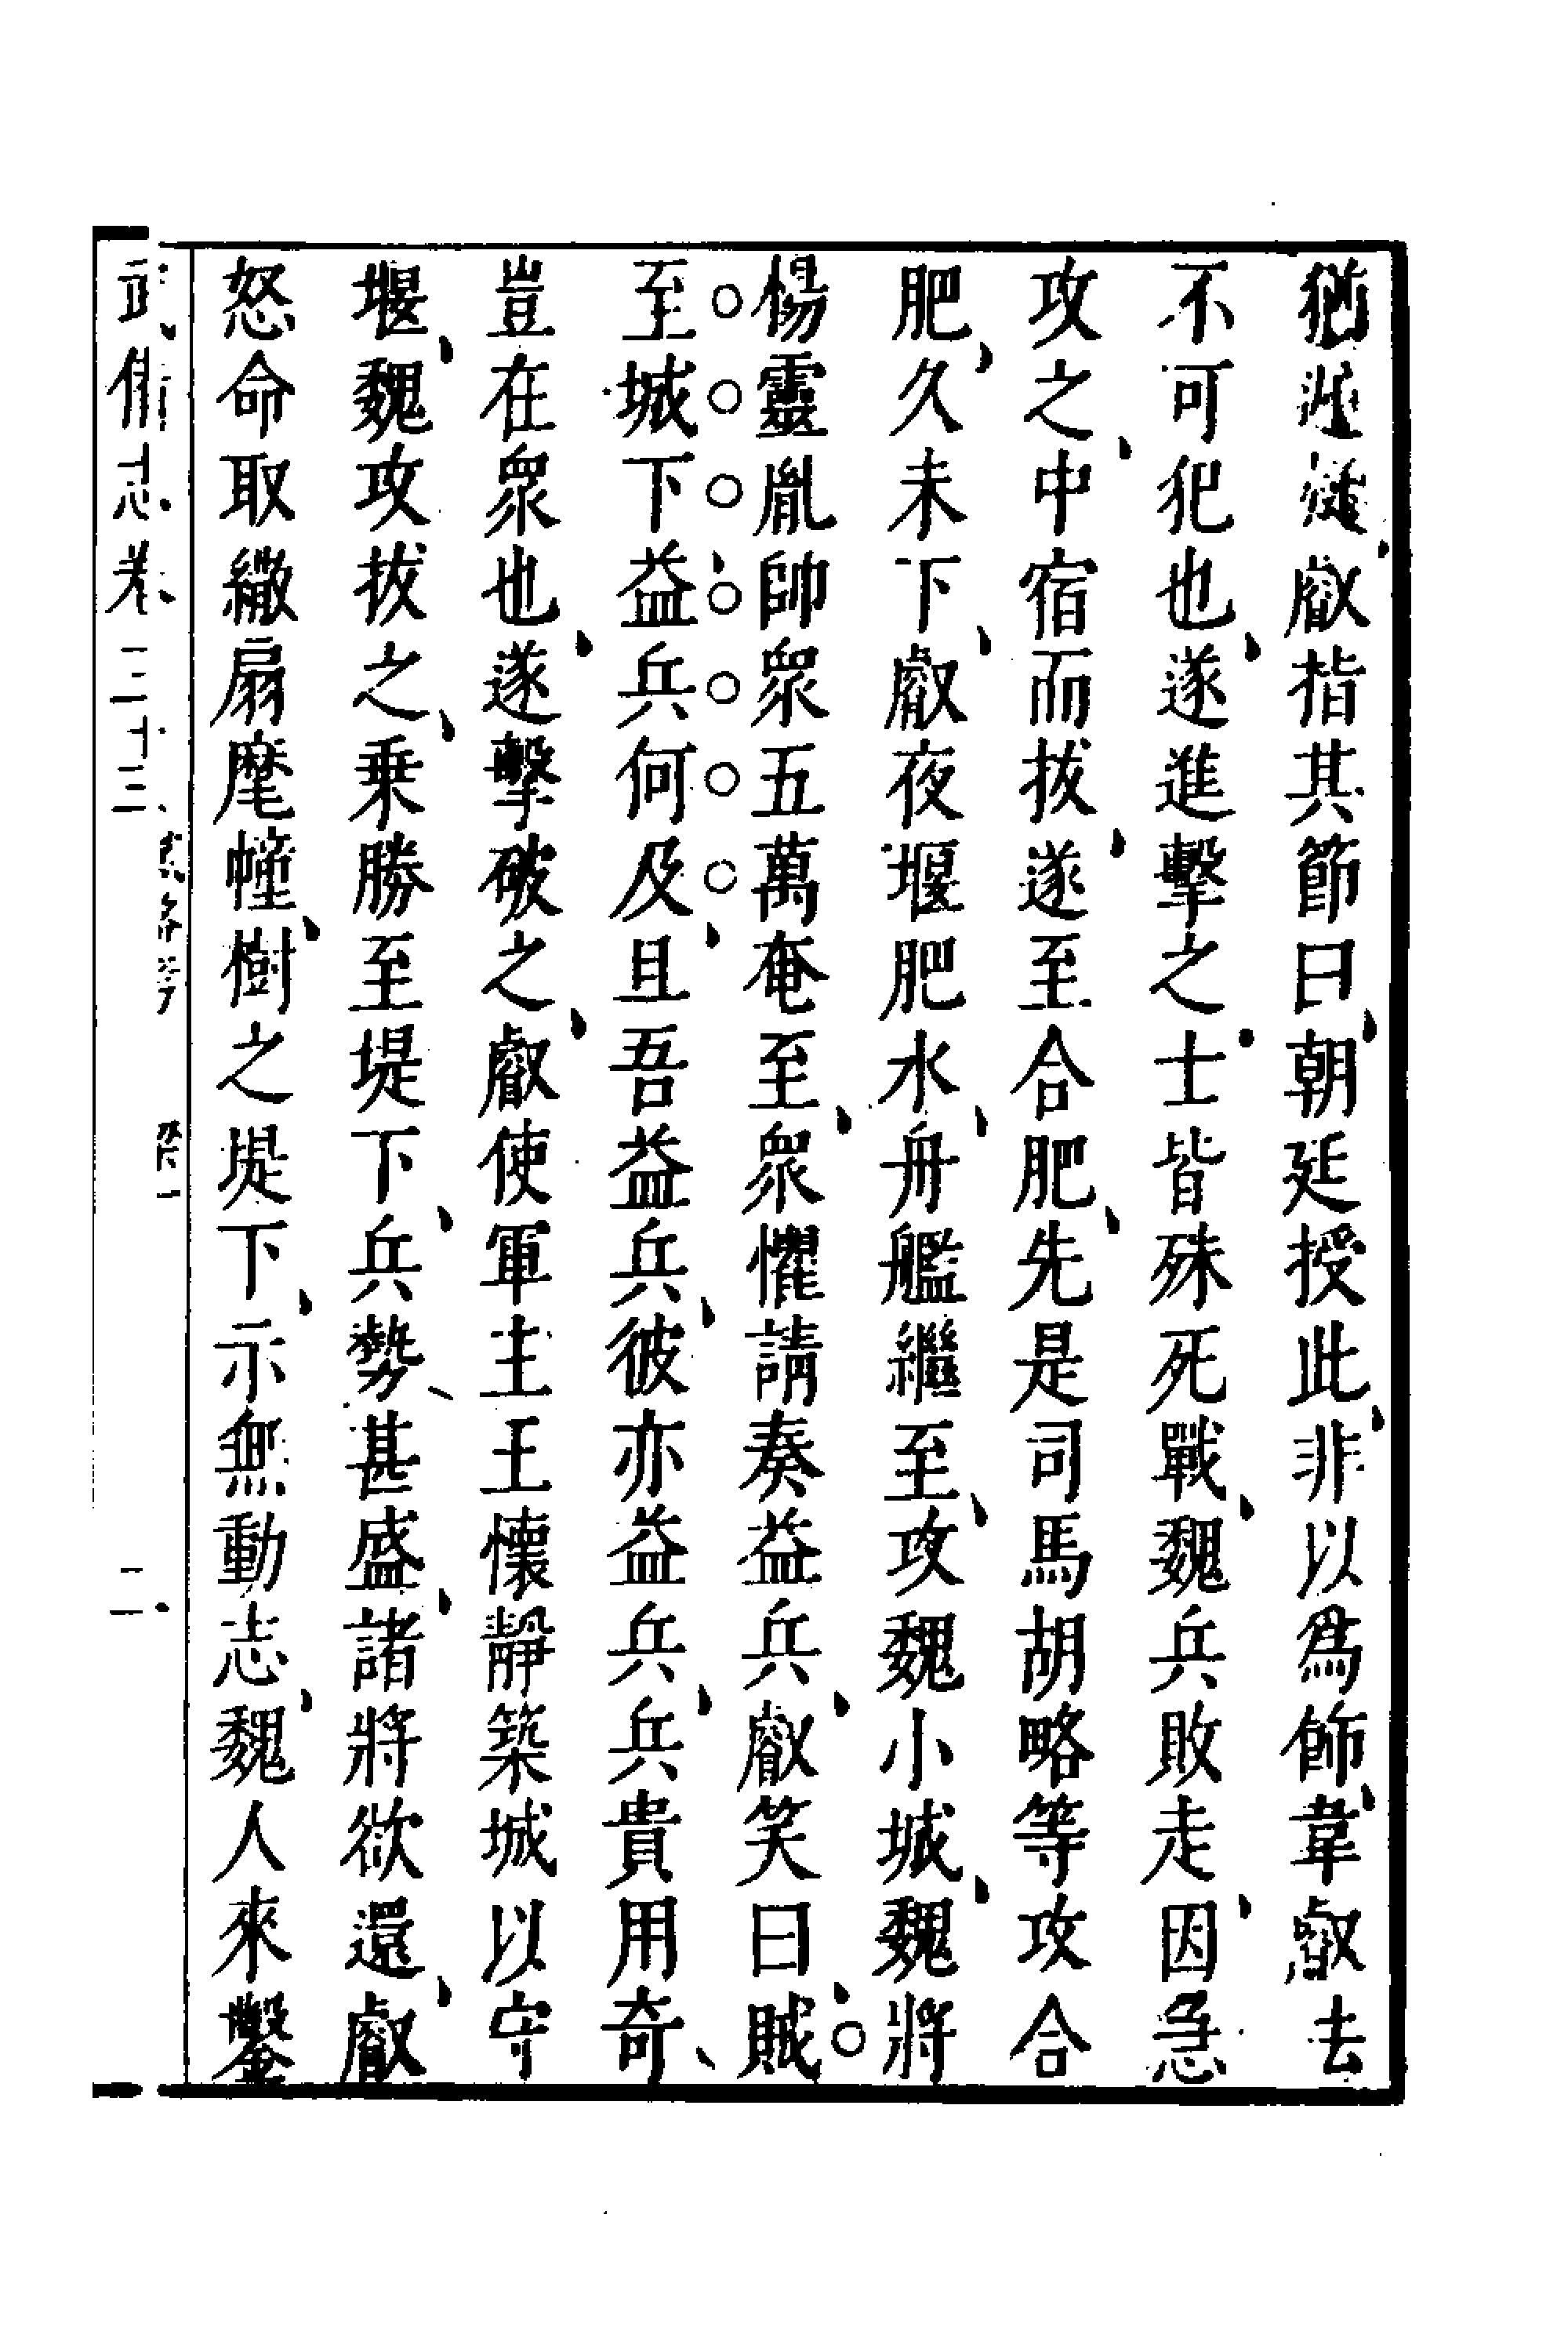 猶遲疑叡指其節曰朝廷授此非以爲飾韋叡去
不可犯也遂進擊之士皆殊死戰魏兵敗走因急
攻之中宿而拔遂至合肥先是司馬胡略等攻合
肥久未下叡夜堰肥水舟艦繼至攻魏小城魏將
楊靈胤帥眾五萬奄至眾懼請奏益兵叡笑曰賊
至城下益兵何及且吾益兵彼亦益兵兵貴用奇
豈在眾也遂擊破之叡使軍主王懷靜築城以守
堰魏攻拔之乗勝至堤下兵勢甚盛諸將欲還叡
怒命取繖扇麾幢樹之堤下示無動志魏人來鑿
武備志卷三十三 梁一 二